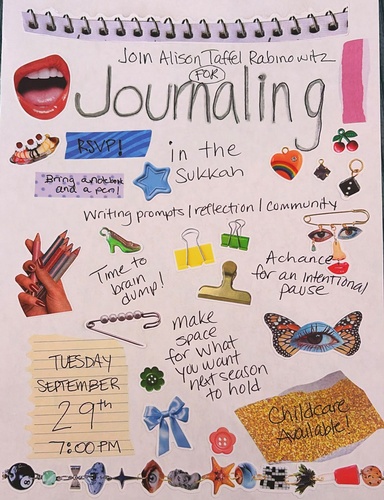 Join Alison Taffel Rabinowitz
FOR
Journaling
RSVP!
in the
Sukkah
Bring a notebook
and a pen!
Writing prompts / reflection / community
Time to
brain
dump!
A chance
for an intentional
pause
make
space
for what
you want
next season
to hold
TUESDAY
SEPTEMBER
29th
7:00 PM
Childcare
Available!